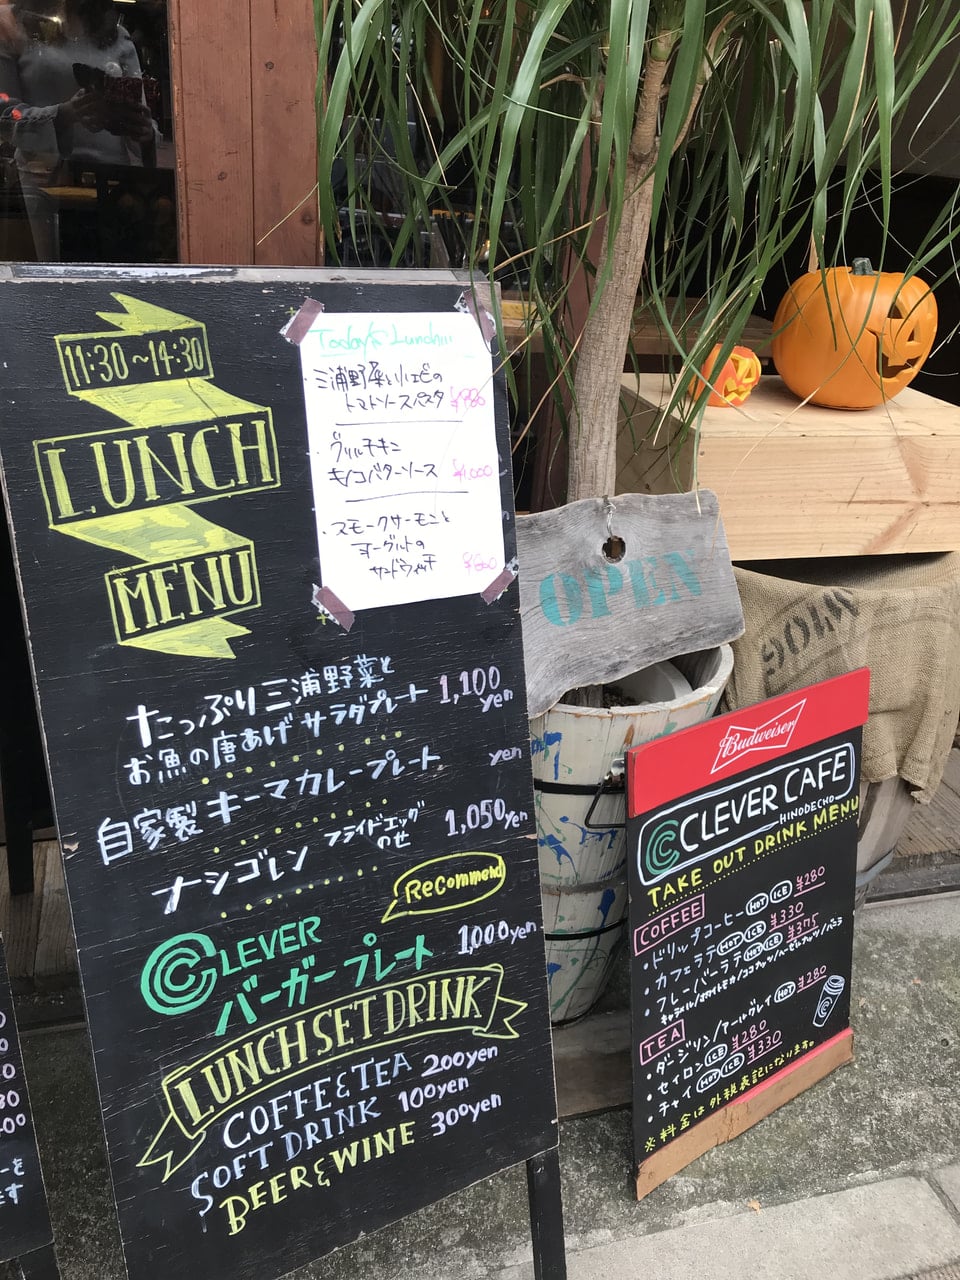 11:30~14:30
LUNCH
MENU
Today's Lunch!!!
・三浦野菜と小エビの
トマトソースパスタ ¥980
・グリルチキン
キノコバターソース ¥1,000
・スモークサーモンと
ヨーグルトの
サンドウィッチ ¥800
たっぷり三浦野菜と
お魚の唐あげサラダプレート 1,100
yen
自家製キーマカレープレート yen
ナシゴレン フライドエッグ
のせ 1,050yen
Recommend
CLEVER
バーガープレート 1,000yen
LUNCH SET DRINK
COFFE&TEA 200yen
SOFT DRINK 100yen
BEER&WINE 300yen
OPEN
Budweiser
CLEVER CAFE
HINODECHO
TAKE OUT DRINK MENU
COFFEE
・ドリップコーヒー HOT ICE ¥280
・カフェラテ HOT ICE ¥330
・フレーバーラテ HOT ICE ¥375
キャラメル/ホワイトモカ/ココナッツ/ヘーゼルナッツ/バニラ
TEA
・ダージリン/アールグレイ HOT ¥280
・セイロン ICE ¥280
・チャイ HOT ICE ¥330
※料金は外税表記になります。